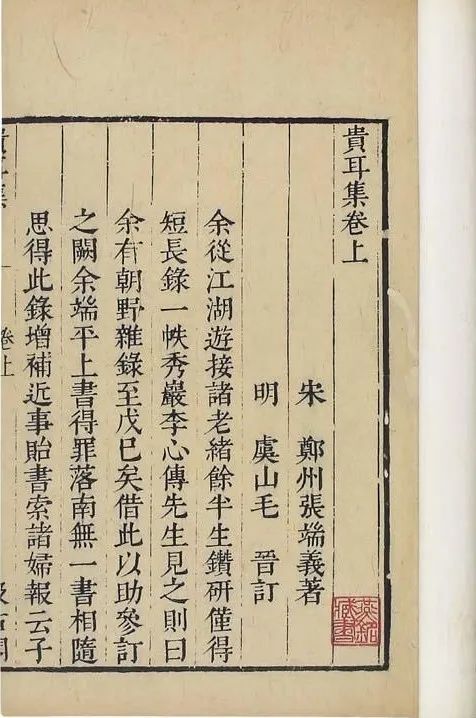 貴耳集卷上
宋 鄭州張端義著
明 虞山毛 晉訂
余從江湖遊接諸老緒餘半生鑽研僅得
短長錄一帙秀巖李心傳先生見之則曰
余有朝野雜錄至戊巳矣借此以助參訂
之闕余端平上書得罪落南無一書相隨
思得此錄增補近事貽書索諸婦報云子
卷上